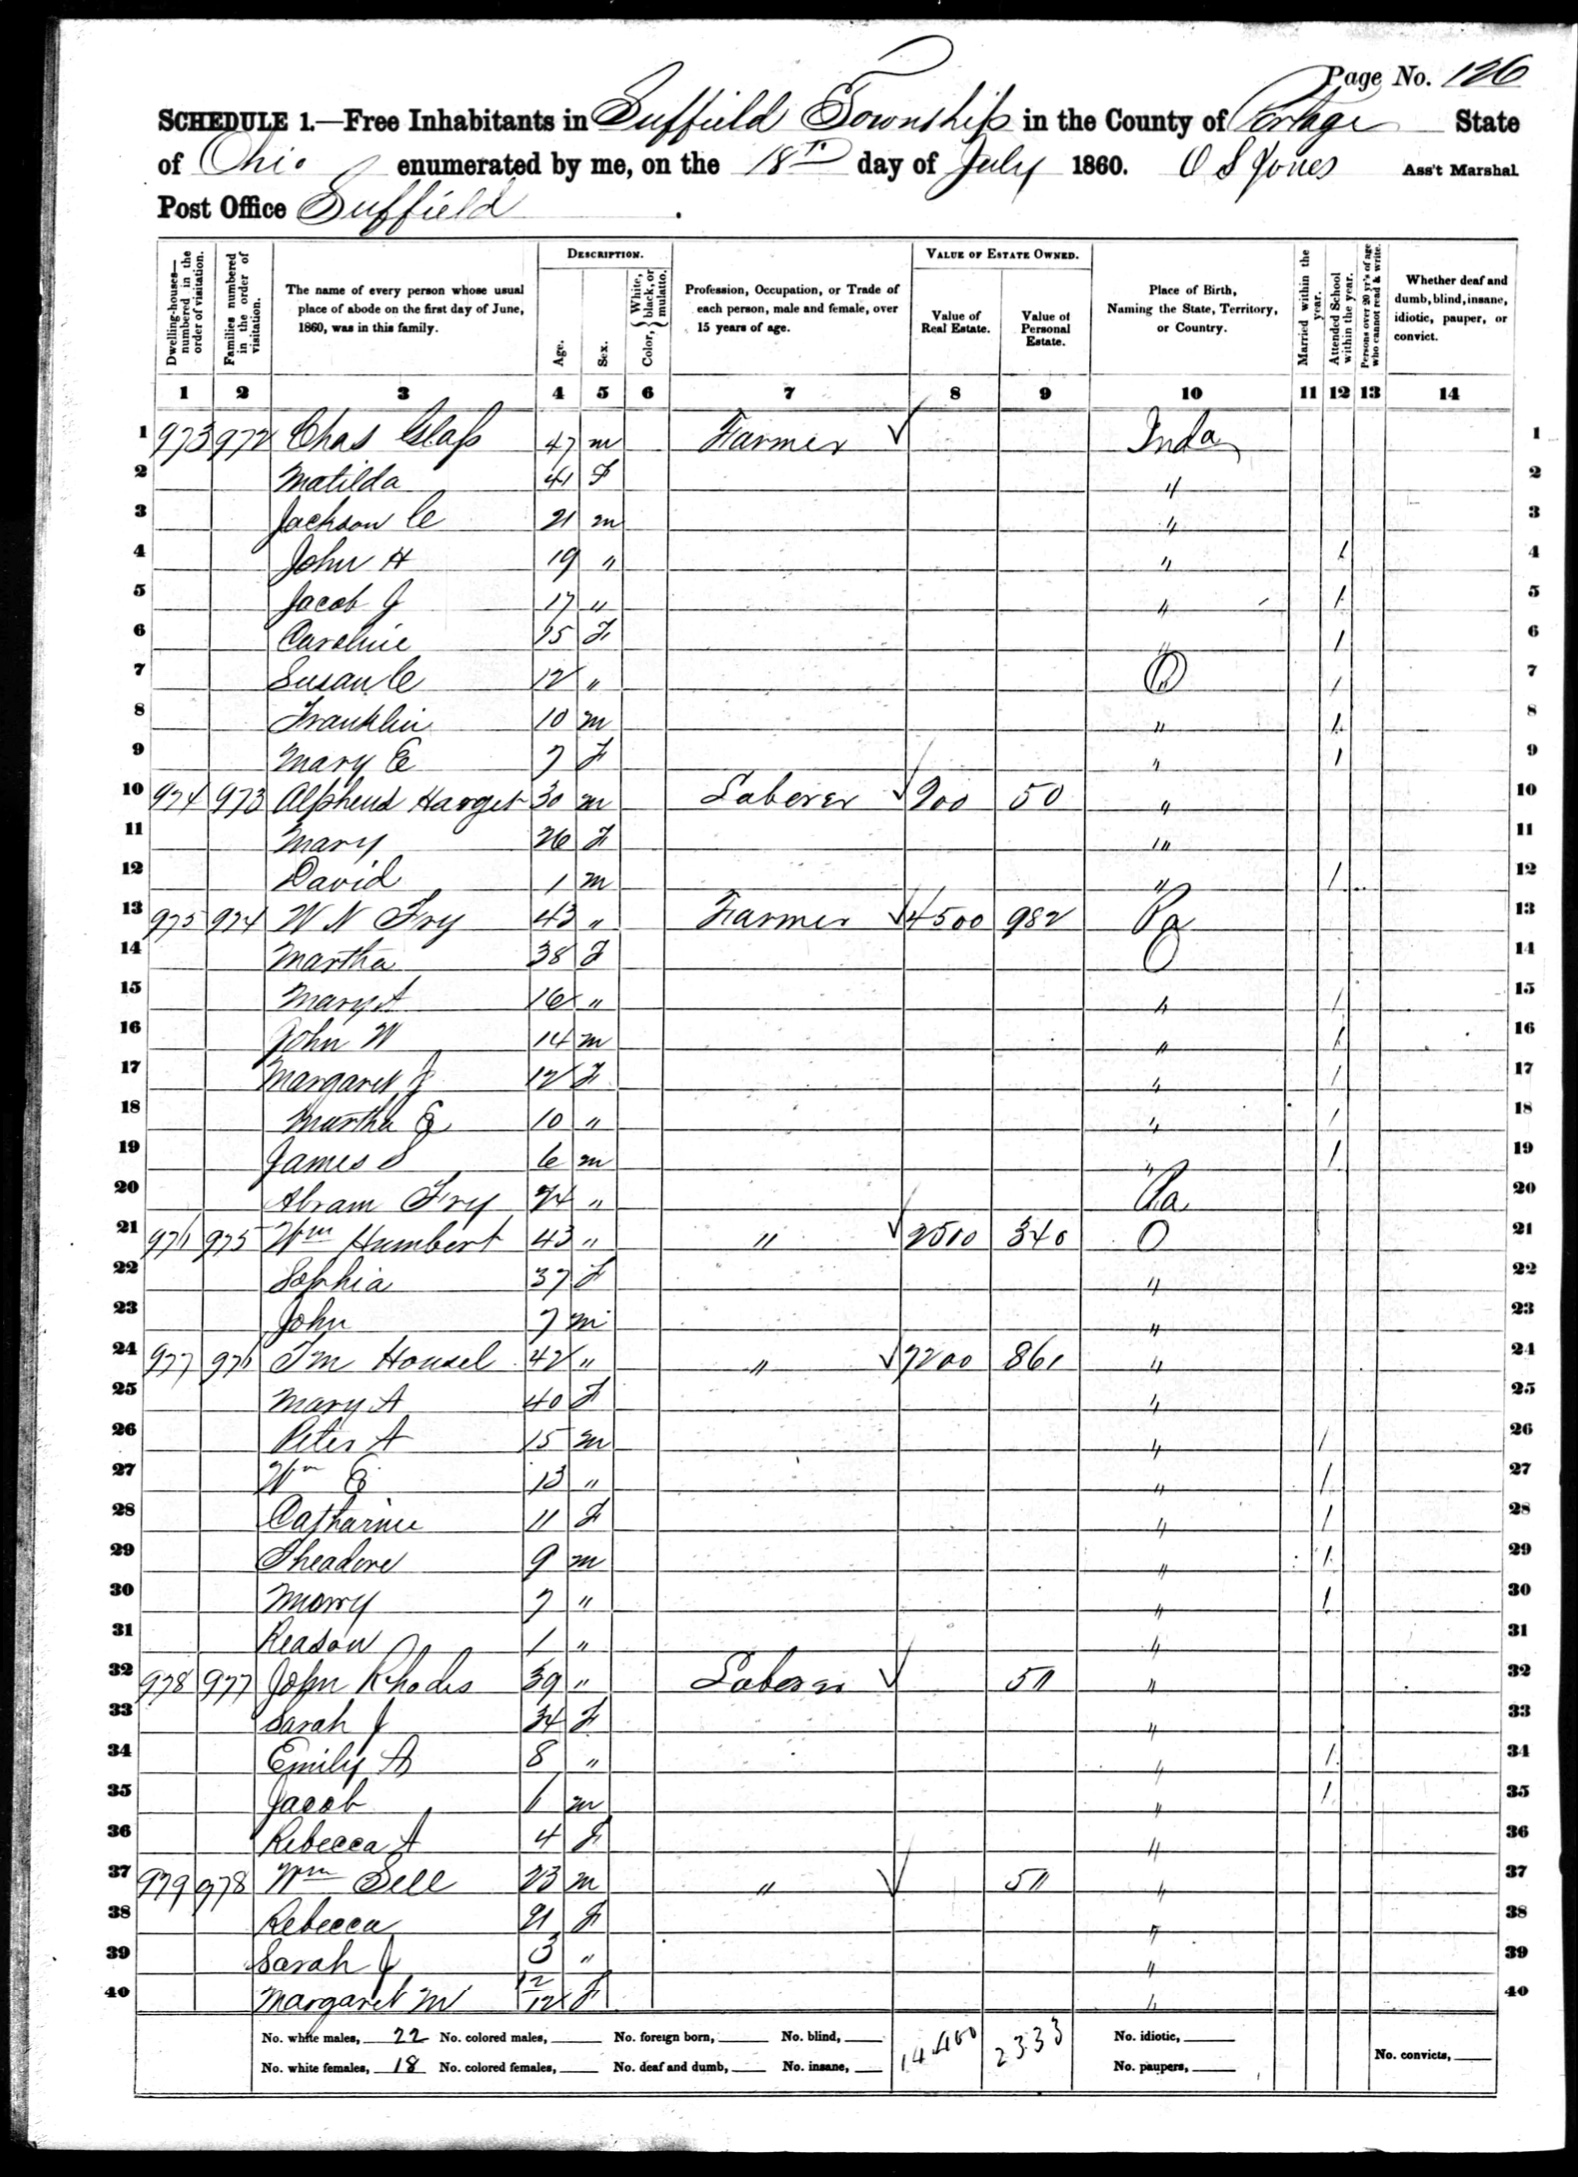 Page No. 126
SCHEDULE 1.—Free Inhabitants in Suffield Township in the County of Portage State
of Ohio enumerated by me, on the 18th day of July 1860. O S Jones Ass't Marshal
Post Office Suffield .
DESCRIPTION. VALUE OF ESTATE OWNED.
Dwelling-houses—numbered in the order of visitation. Families numbered in the order of visitation. The name of every person whose usual place of abode on the first day of June, 1860, was in this family. Age. Sex. Color, {White, black, or mulatto. Profession, Occupation, or Trade of each person, male and female, over 15 years of age. Value of Real Estate. Value of Personal Estate. Place of Birth, Naming the State, Territory, or Country. Married within the year. Attended School within the year. Persons over 20 yr's of age who cannot read & write. Whether deaf and dumb, blind, insane, idiotic, pauper, or convict.
1 2 3 4 5 6 7 8 9 10 11 12 13 14
1 973 972 Chas Glass 47 m Farmer Inda 1
2 Matilda 41 F " 2
3 Jackson C 21 m " 3
4 John H 19 " " 1 4
5 Jacob J 17 " " 1 5
6 Caroline 15 F " 1 6
7 Susan C 12 " O 1 7
8 Franklin 10 m " 1 8
9 Mary E 7 F " 1 9
10 974 973 Alpheus Harget 30 m Laborer 200 50 " 10
11 Mary 26 F " 11
12 David 1 m " 1 12
13 975 974 W N Fry 43 " Farmer 4500 982 Pa 13
14 Martha 38 F O 14
15 Mary A 16 " " 1 15
16 John W 14 m " 1 16
17 Margaret J 12 F " 1 17
18 Martha E 10 " " 1 18
19 James S 6 m " 1 19
20 Abram Fry 74 " Pa 20
21 976 975 Wm Humbert 43 " " 2500 340 O 21
22 Sophia 37 F " 22
23 John 7 m " 23
24 977 976 Housel 42 " " 7200 861 " 24
25 Mary A 40 F " 25
26 Peter A 15 m " 1 26
27 Wm E 13 " " 1 27
28 Catharine 11 F " 1 28
29 Theadore 9 m " 1 29
30 7 " " 1 30
31 Reason 1 " " 31
32 978 977 John Rhodes 39 " Laborer 50 " 32
33 Sarah J 34 F " 33
34 Emily A 8 " " 1 34
35 Jacob m " 1 35
36 Rebecca A 4 F " 36
37 979 978 Wm Sell 23 m " 50 " 37
38 Rebecca 21 F " 38
39 Sarah J 3 " " 39
40 Margaret M F " 40
No. white males, 22 No. colored males, No. foreign born, No. blind, 14400 2333 No. idiotic,
No. white females, 18 No. colored females, No. deaf and dumb, No. insane, No. paupers, No. convicts,